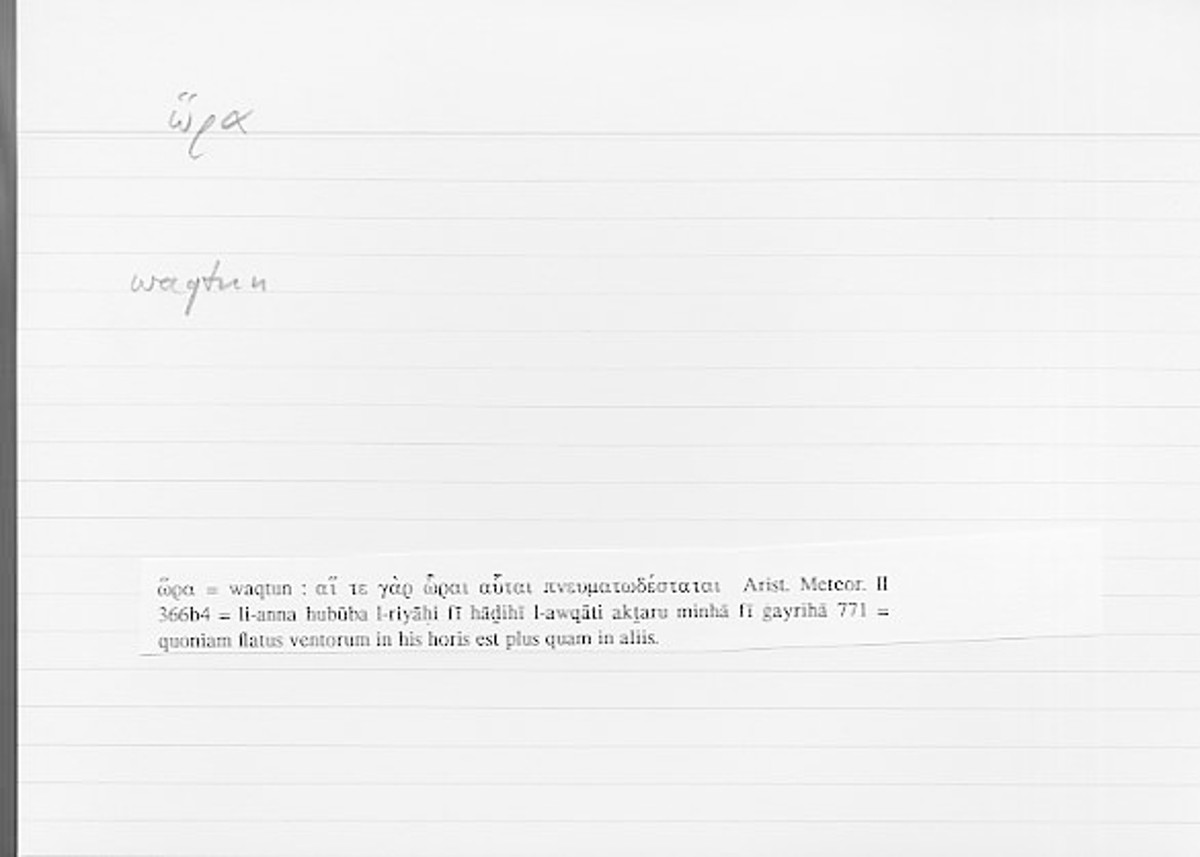 ὥρα
waqtun
ὥρα = waqtun : αἵ τε γὰρ ὧραι αὗται πνευματωδέσταται Arist. Meteor. II
366b4 = li-anna hubūba l-riyāḥi fī hāḏihī l-awqāti akṯaru minhā fī ġayrihā 771 =
quoniam flatus ventorum in his horis est plus quam in aliis.